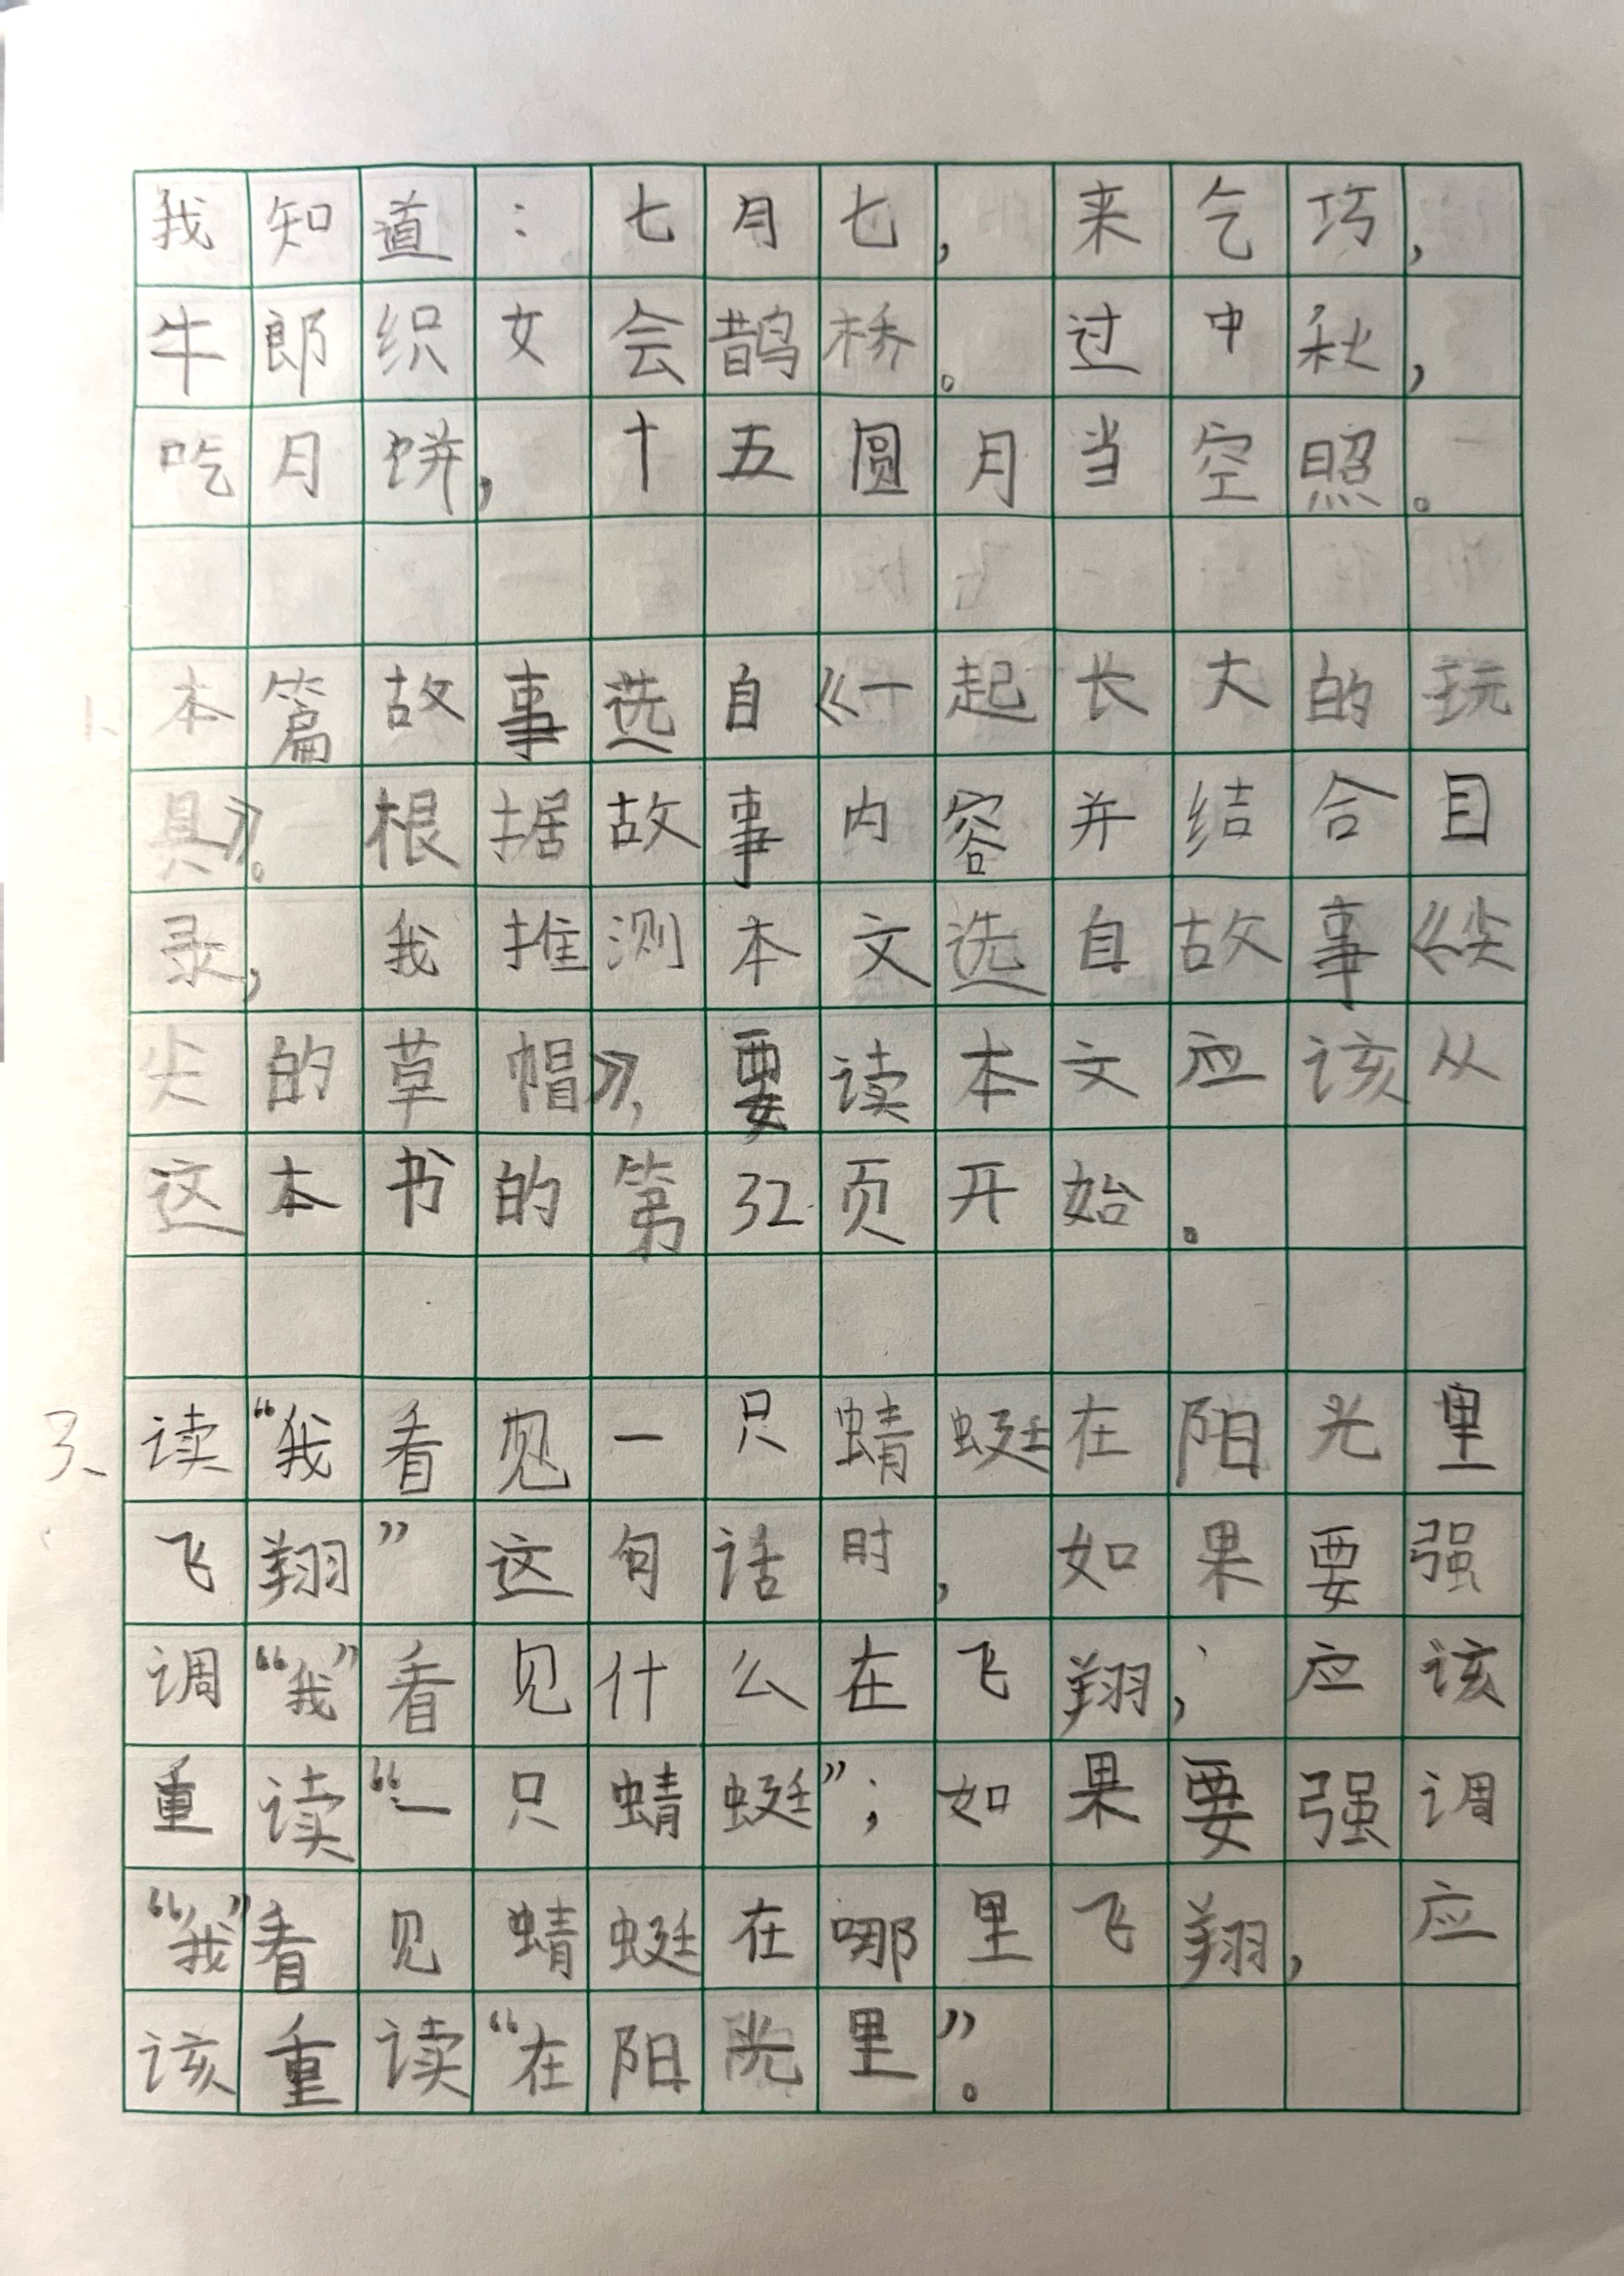 我知道：七月七，来乞巧，
牛郎织女会鹊桥。过中秋，
吃月饼，十五圆月当空照。
1、本篇故事选自《一起长大的玩
具》。根据故事内容并结合目
录，我推测本文选自故事《尖
尖的草帽》，要读本文应该从
这本书的第32页开始。
3、读“我看见一只蜻蜓在阳光里
飞翔”这句话时，如果要强
调“我”看见什么在飞翔，应该
重读“一只蜻蜓”；如果要强调
“我”看见蜻蜓在哪里飞翔，应
该重读“在阳光里”。